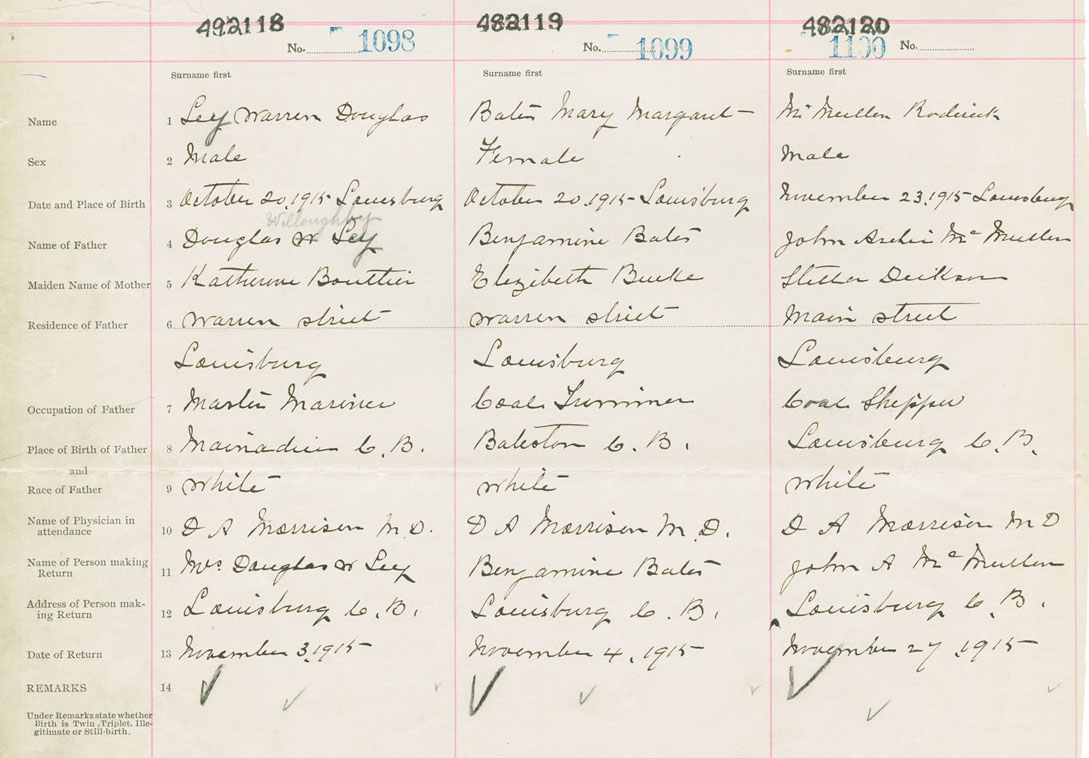 492118 482119 482120
No. 1098 No. 1099 1100 No.
Surname first Surname first Surname first
Name 1 Ley Warren Douglas Bates Mary Margaret Mc Mullen Roderick
Sex 2 Male Female Male
Date and Place of Birth 3 October 20, 1915 Louisburg October 20, 1915 Louisburg November 23, 1915 Louisburg
Willoughby
Name of Father 4 Douglas W Ley Benjamine Bates John Archie Mc Mullen
Maiden Name of Mother 5 Katherine Bouttier Elizibeth Burke Stella Dickson
Residence of Father 6 Warren street Warren street Main street
Louisburg Louisburg Louisburg
Occupation of Father 7 Master Mariner Coal Trimmer Coal Shipper
Place of Birth of Father 8 Mainadieu C. B. Bateston C. B. Louisburg C. B.
and
Race of Father 9 White White White
Name of Physician in
attendance 10 D A Morrison M. D. D A Morrison M. D. D A Morrison M D
Name of Person making
Return 11 Mrs Douglas W Ley Benjamine Bates John A Mc Mullen
Address of Person mak-
ing Return 12 Louisburg C. B. Louisburg C. B. Louisburg C. B.
Date of Return 13 November 3, 1915 November 4, 1915 November 27, 1915
REMARKS 14
Under Remarks state whether
Birth is Twin, Triplet, Ille-
gitimate or Still-birth.